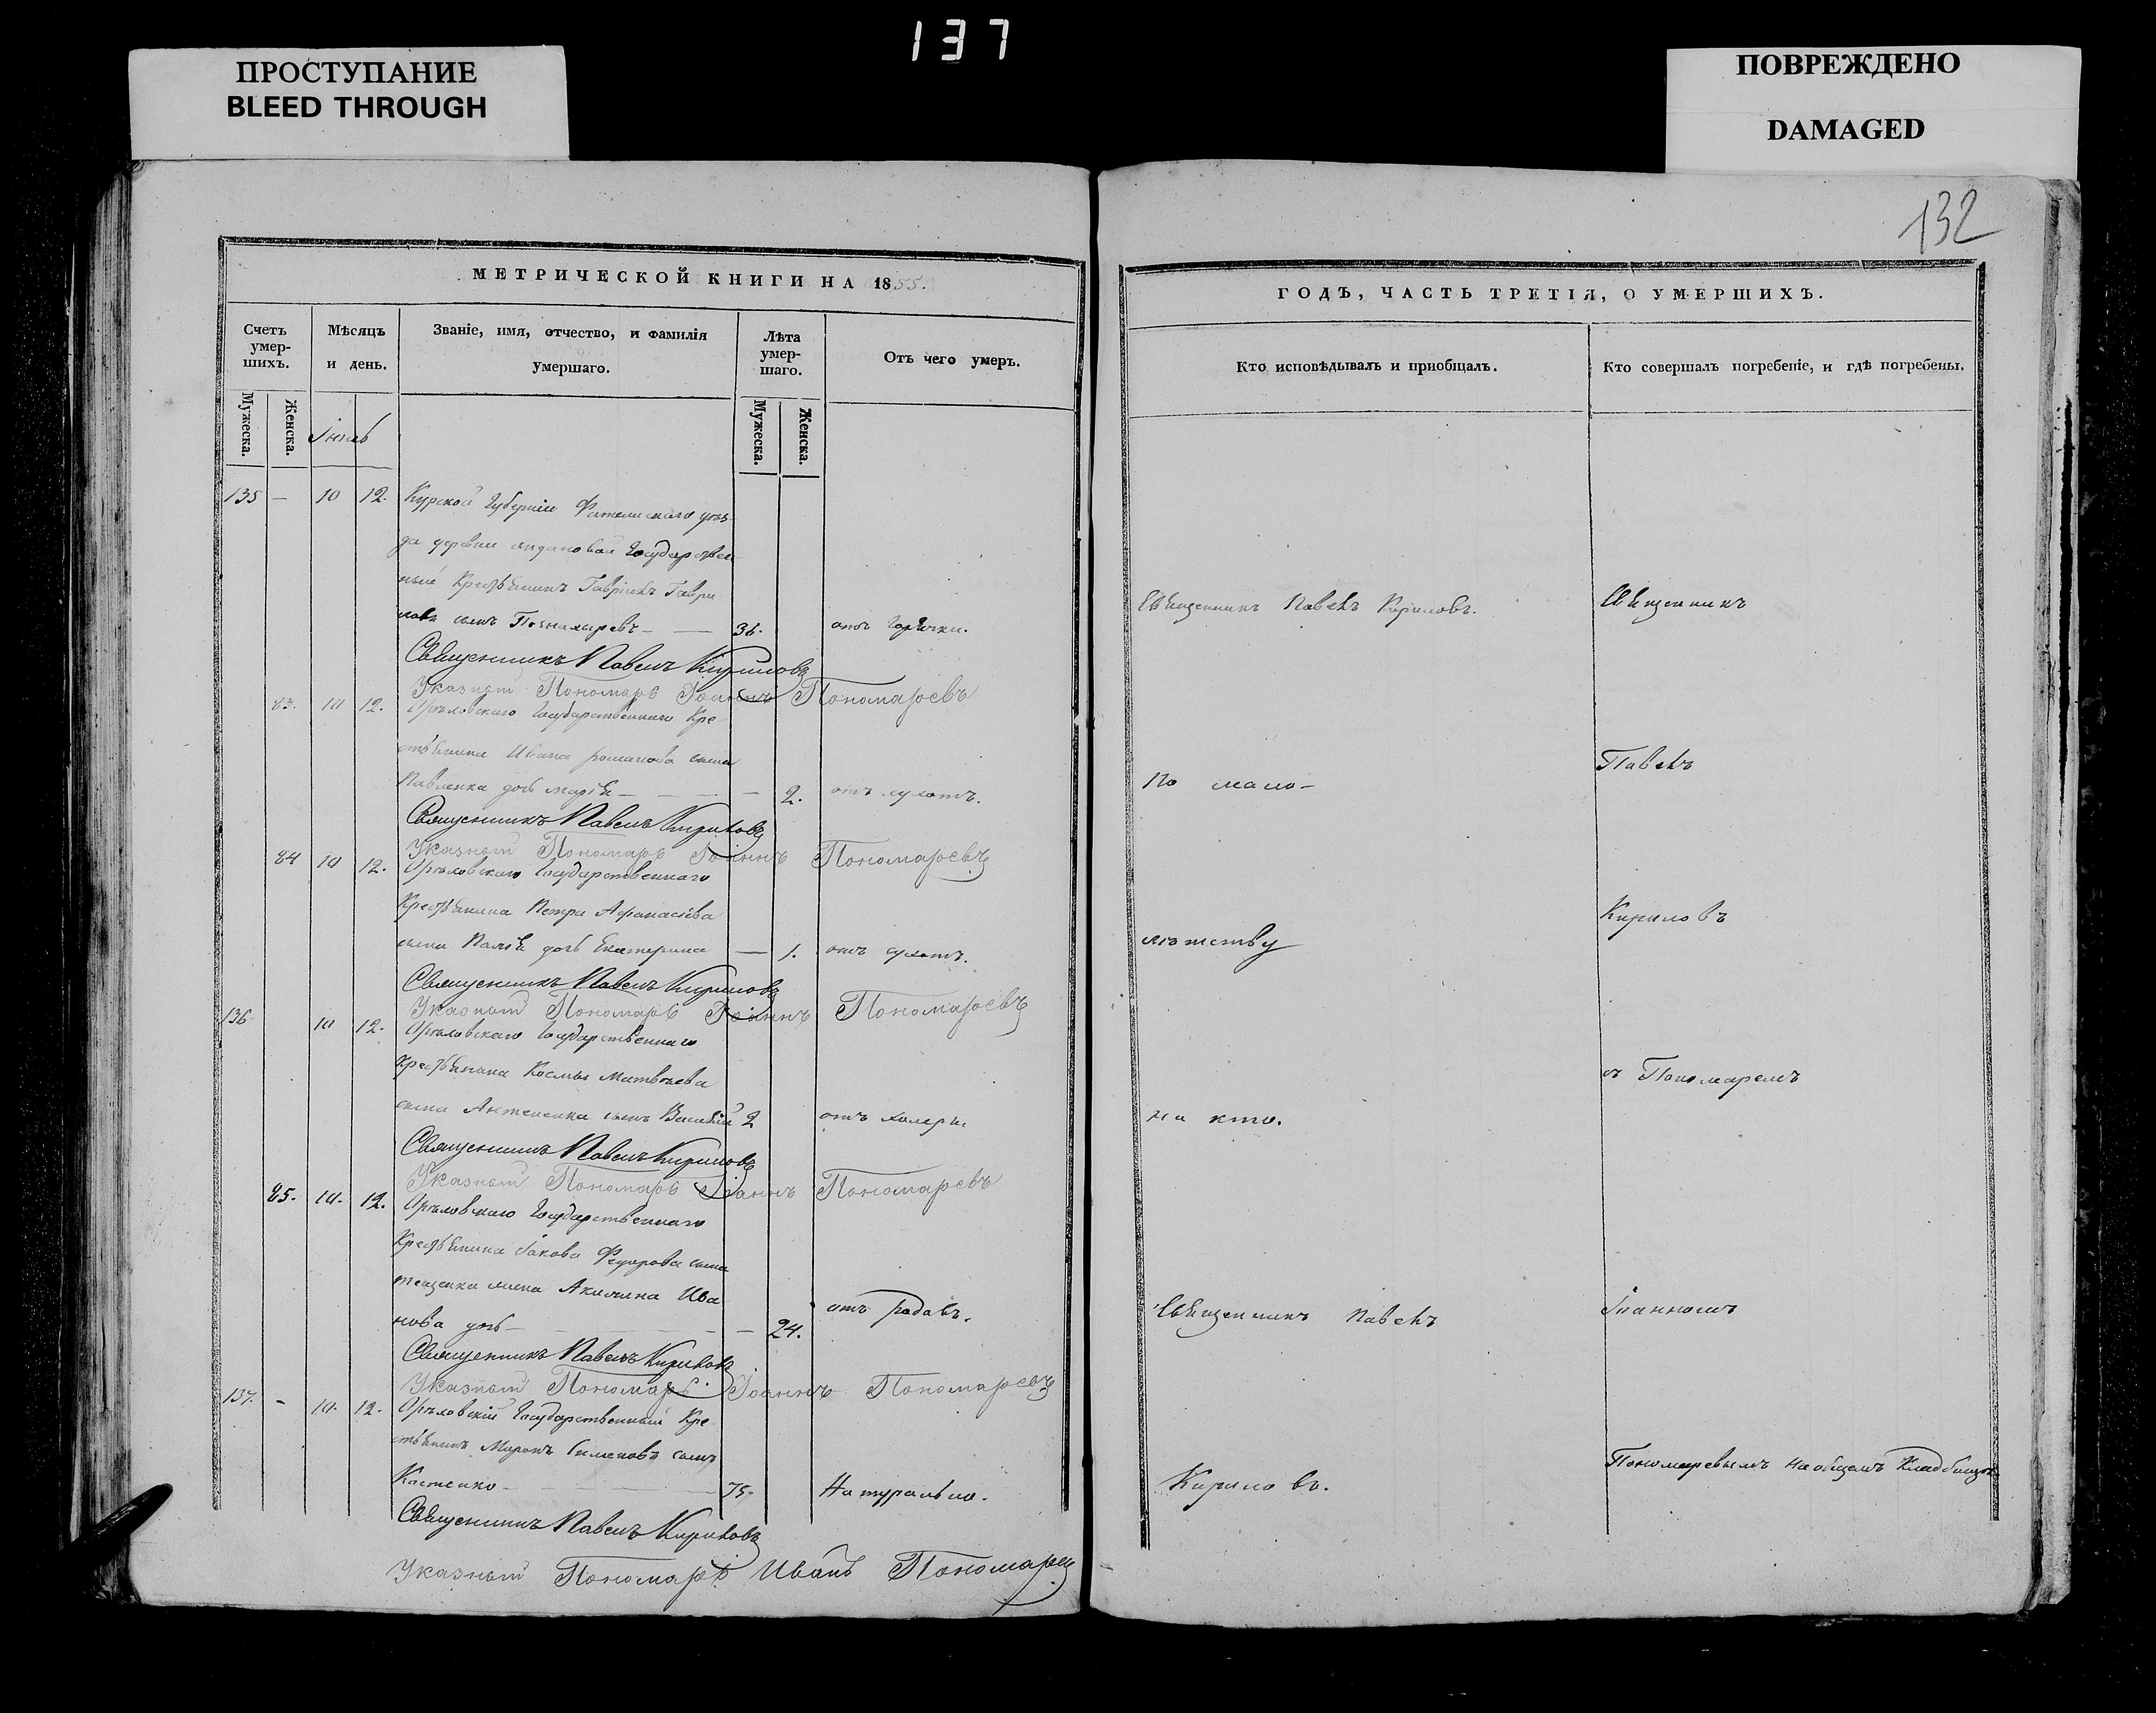 137
ПРОСТУПАНИЕ
BLEED THROUGH
ПОВРЕЖДЕНО
DAMAGED
132
МЕТРИЧЕСКОЙ КНИГИ НА 1855.
Счетъ умер-шихъ.
Мѣсяцъ и день.
Званіе, имя, отчество, и фамилія умершаго.
Лѣта умер-шаго.
Отъ чего умеръ.
Мужеска.
Женска.
Мужеска.
Женска.
135 — 10 12. Курской Губерніи уѣз-
да деревни Государствен
ный Крестьянинъ Гаврiилъ Гаври
лова сынъ Пономаревъ — — 36. отъ горячки.
Священникъ Павелъ Кириловъ
Указной Пономарь Іоаннъ Пономаревъ
83. 10 12. Государственнаго Кре
стьянина Ивана Романова сына
Павленка дочь Марія — — 2. отъ сухотъ.
Священникъ Павелъ Кириловъ
Указной Пономарь Іоаннъ Пономаревъ
84 10 12. Государственнаго
Крестьянина Петра Афанасіева
сына дочь Екатерина — 1. отъ сухотъ.
Священникъ Павелъ Кириловъ
Указной Пономарь Іоаннъ Пономаревъ
136. 10 12. Государственнаго
Крестьянина Космы Матвѣева
сына сынъ Василій 2 отъ холеры
Священникъ Павелъ Кириловъ
Указной Пономарь Іоаннъ Пономаревъ
85. 10. 12. Государственнаго
Крестьянина Іакова Федорова сына
жена Акилина Ива
нова дочь — — 24. отъ родовъ.
Священникъ Павелъ Кириловъ
Указной Пономарь Іоаннъ Пономаревъ
137. — 10. 12. Государственный Кре
стьянинъ Миронъ Симеоновъ сынъ
Костенко — 75. Натурально.
Священникъ Павелъ Кириловъ
Указной Пономарь Иванъ Пономарев
ГОДЪ, ЧАСТЬ ТРЕТІЯ, О УМЕРШИХЪ.
Кто исповѣдывалъ и приобщалъ.
Кто совершалъ погребеніе, и гдѣ погребены.
Священникъ Павелъ Кириловъ.
Священникъ
По мало-
Павелъ
лѣтству
Кириловъ
съ Пономаремъ
ни кто.
Священникъ Павелъ
Іоанномъ
Кириловъ.
Пономаревымъ на общемъ Кладбищѣ